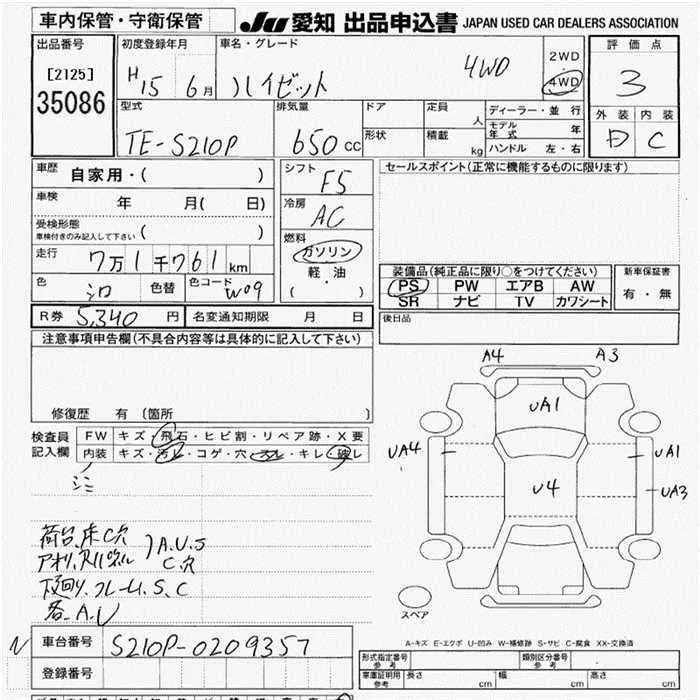 車内保管・守衛保管
JU 愛知 出品申込書 JAPAN USED CAR DEALERS ASSOCIATION
出品番号
[2125]
35086
初度登録年月
H15 6月
車名・グレード
ハイゼット 4WD
2WD
4WD
評価点
3
外装 内装
D C
型式
TE-S210P
排気量
650 CC
ドア
形状
定員 人
積載 kg
ディーラー・並行
モデル年式 年
ハンドル 左・右
車歴
自家用・( )
車検 年 月( 日)
受検形態
車検付きのみ記入して下さい ( )
走行 7万1千761km
色 シロ 色替 色コード W09
シフト
F5
冷房
AC
燃料
ガソリン
・
軽油
( )
セールスポイント(正常に機能するものに限ります)
装備品(純正品に限り○をつけてください)
PS PW エアB AW
SR ナビ TV カワシート
新車保証書
有・無
R券 5,340 円 名変通知期限 月 日
後日品
注意事項申告欄(不具合内容等は具体的に記入して下さい)
修復歴 有 〔箇所 〕
検査員
記入欄
FW キズ・飛石・ヒビ割・リペア跡・X要
内装 キズ・汚レ・コゲ・穴・スレ・キレ・破レ
シミ
荷台、床C穴
アオリ、リヤパネル )A.U.S
C.穴
下回り、フレームS、C
各A.U
A4 A3
UA1
UA4 UA1
U4
UA3
スペア
A-キズ E-エクボ U-凹み W-補修跡 S-サビ C-腐食 XX-交換済
車台番号 S210P-0209357
登録番号
形式指定番号
参考
類別区分番号
参考
車庫証明用
参考
長さ cm 幅 cm 高さ cm